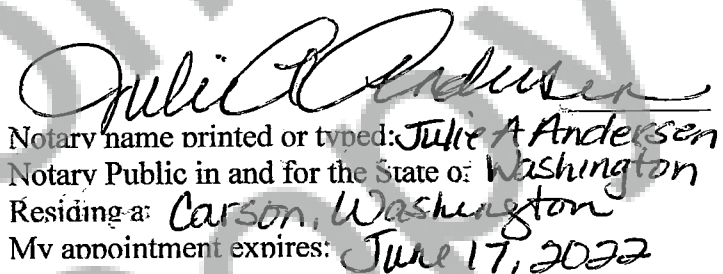 Julie A Andersen
Notary name printed or typed: Julie A Andersen
Notary Public in and for the State of Washington
Residing at Carson, Washington
My appointment expires: June 17, 2022